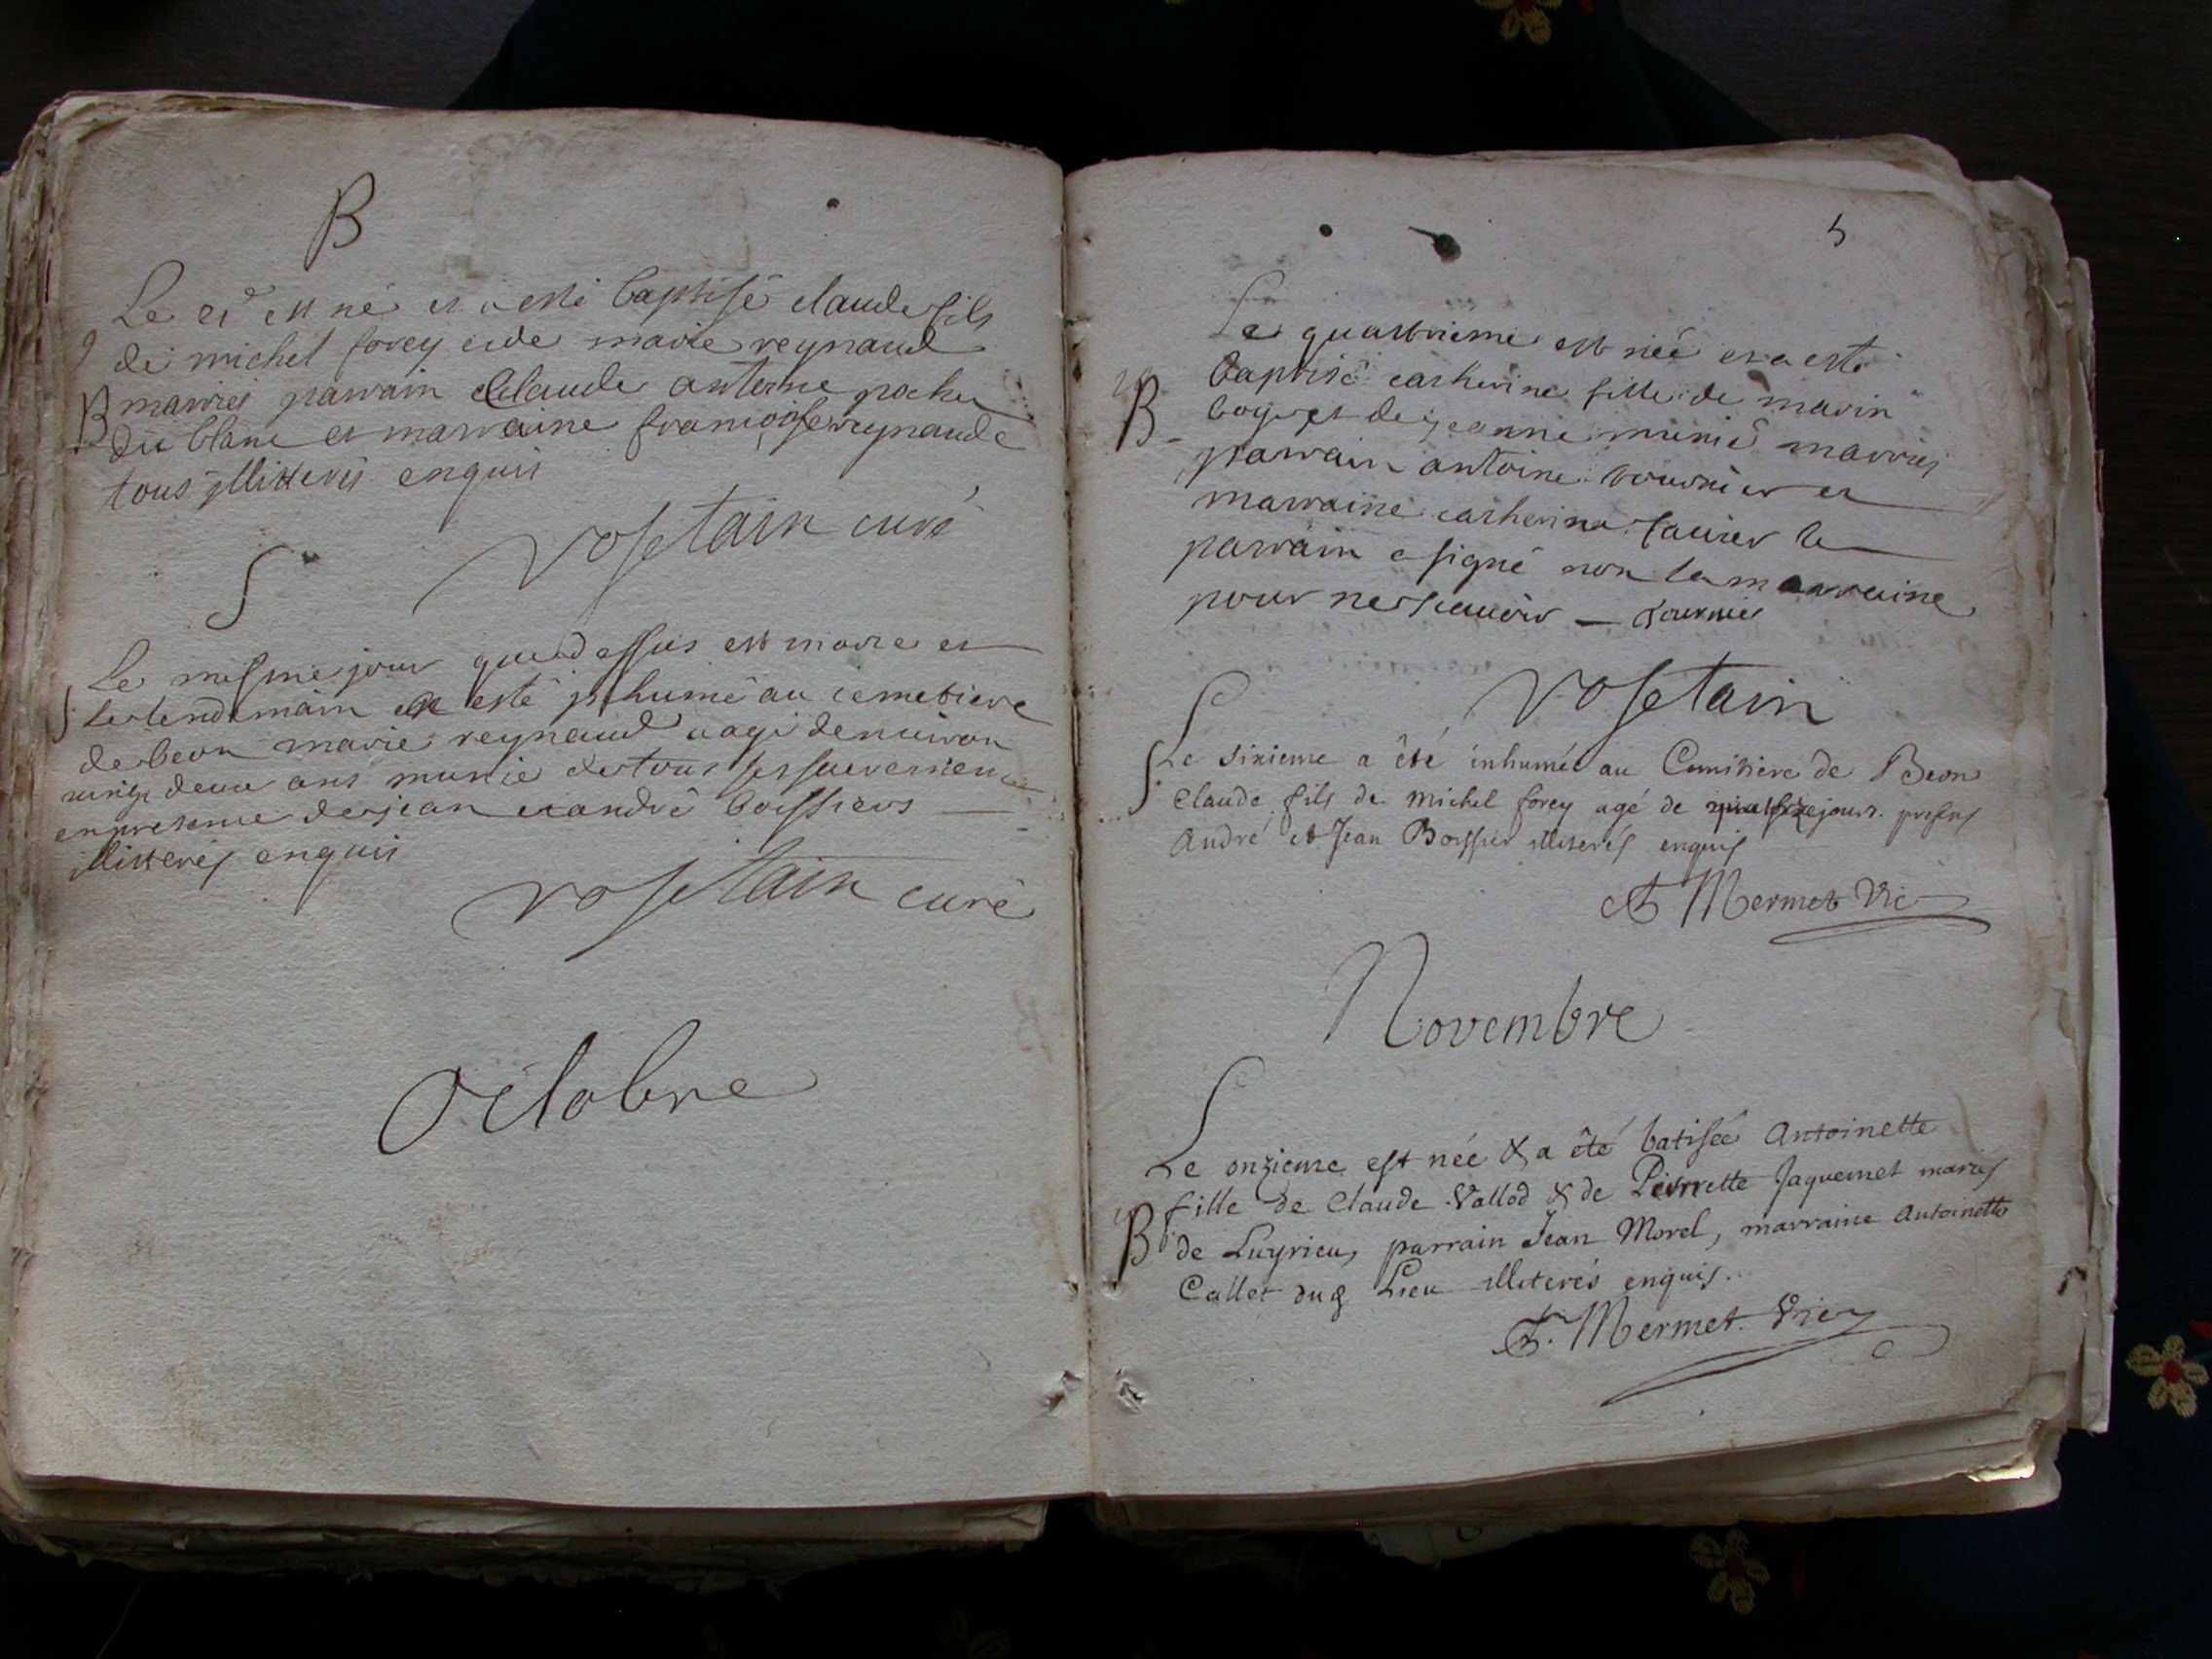 B
Le 21e est né et a esté baptisé claude fils
9 de michel forey et de marie reynaud
B mariés parrain Claude antoine pochet
du blanc et marraine françoise reynaude
tous illitterés enquis
vosetain curé
S
Le mesme jour que dessus est morte et
S le lendemain a esté inhumé au cemetiere
de beon marie reynaud aagé denviron
vingt deux ans munie de tous ses sacremens
en presence de jean et andré boissiers
illitterés enquis
vosetain curé
Octobre
5
Le quattrieme est née et a esté
baptisé catherine fille de marin
B boget et de jeanne munié mariés
parrain antoine tournier et
marraine catherine le
parrain a signé non la marraine
pour ne scauoir — tournier
vosetain
S Le sixieme a été inhumée au Cemitiere de Beon
Claude fils de Michel forey agé de jours. presens
André et Jean Boissier illiterés enquis
F Mermet Vic
Novembre
Le onzieme est née & a été batisée Antoinette
fille de Claude Vallod & de Pierrette Jaquemet mariés
B de Luyrieu, parrain Jean Morel, marraine Antoinette
Callet dud Lieu illiterés enquis.
F. Mermet. Vic